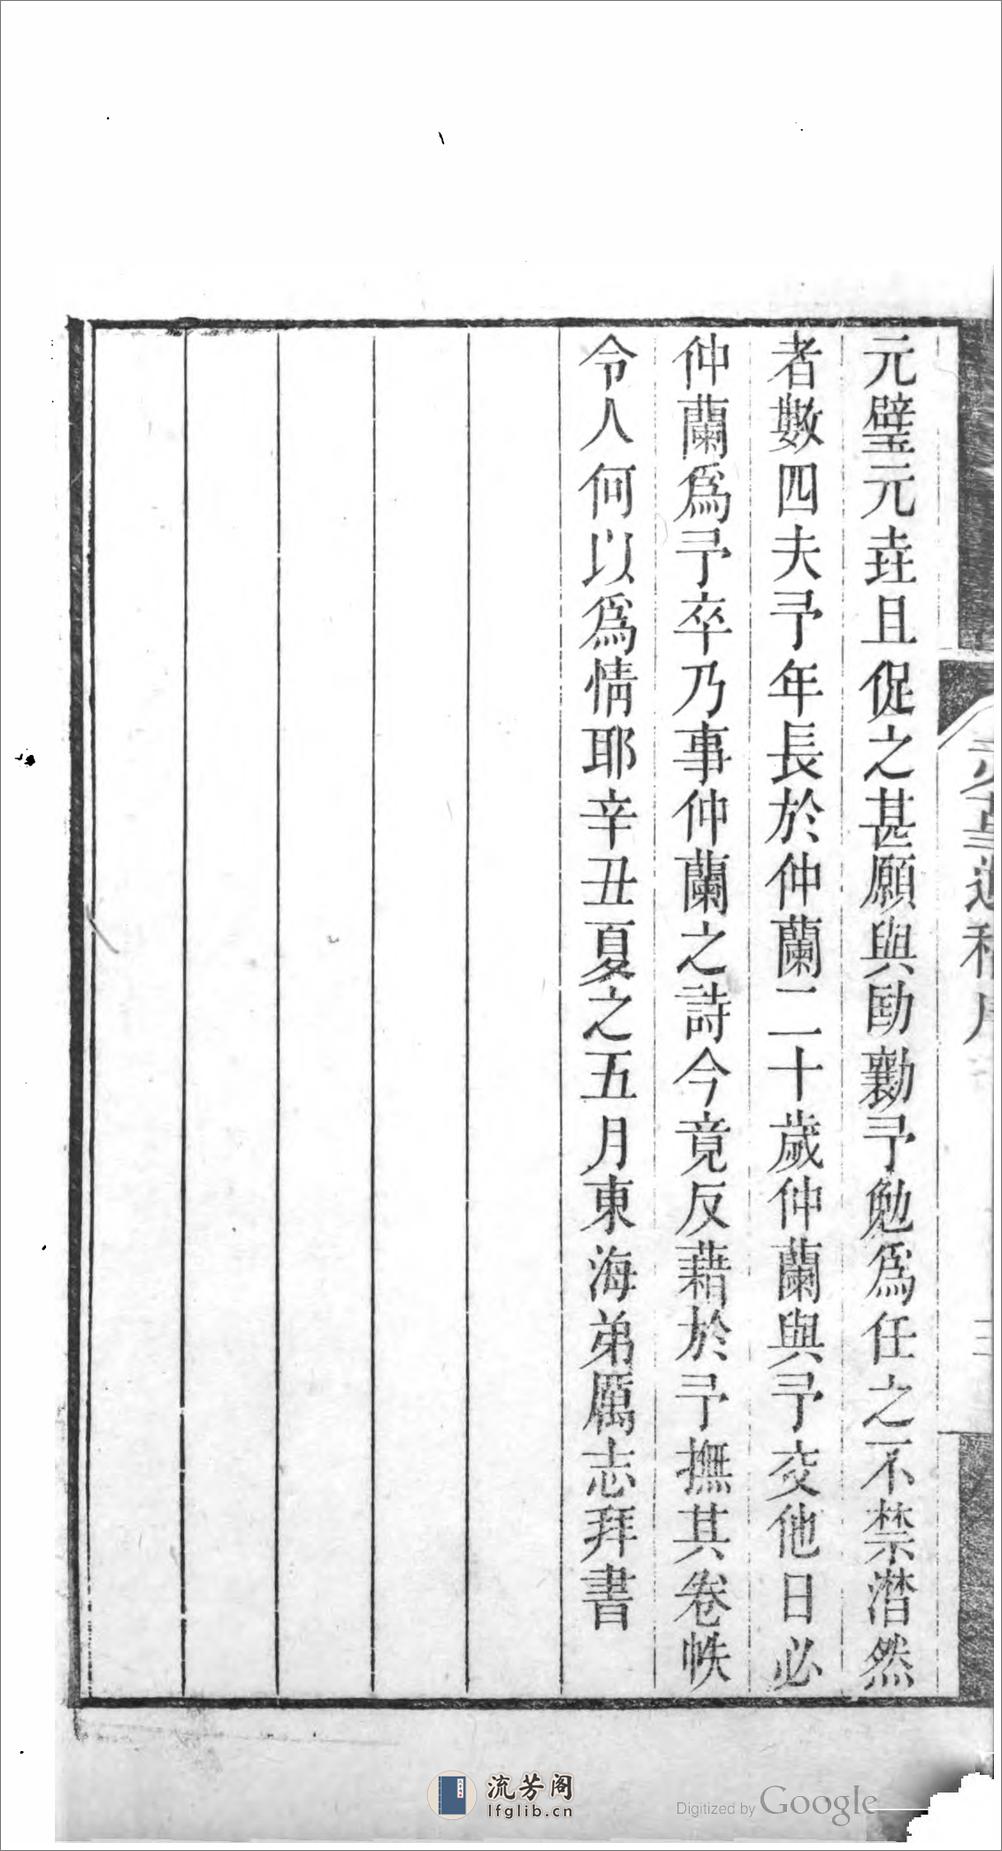 元璧元垚且促之甚願與勖勷予勉爲任之不禁潸然
者數四夫予年長於仲蘭二十歲仲蘭與予交他日必
仲蘭爲予卒乃事仲蘭之詩今竟反藉於予撫其卷帙
令人何以爲情耶辛丑夏之五月東海弟厲志拜書
流芳阁
lfglib.cn
Digitized by Google